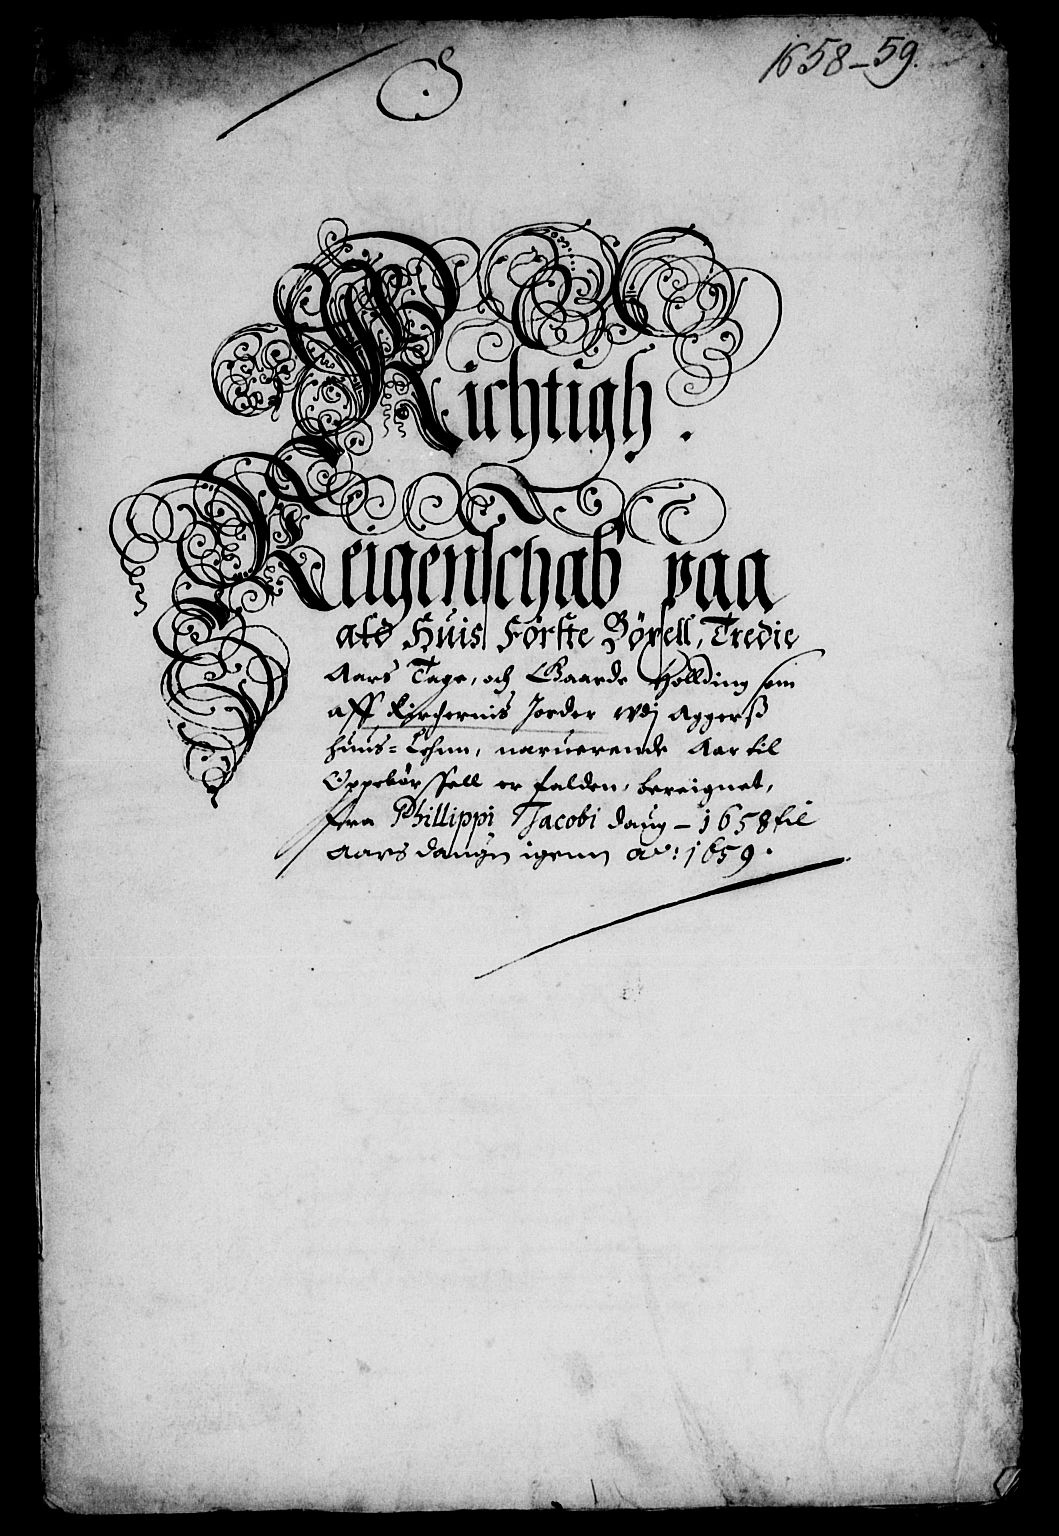 1658-59.
Richtigh.
Reigenschab paa
ald Huis Förste Böxell, Tredie
Aars Tage, och Baarde Hollding som
aff Kirchernis Jorder udj Aggerß
huus=Lehnn, naruerende Aar til
Oppebørssell er falden, bereignet,
fra Phillippi Jacobi daug - 1658 til
Aars daugen igenn Ao: 1659.